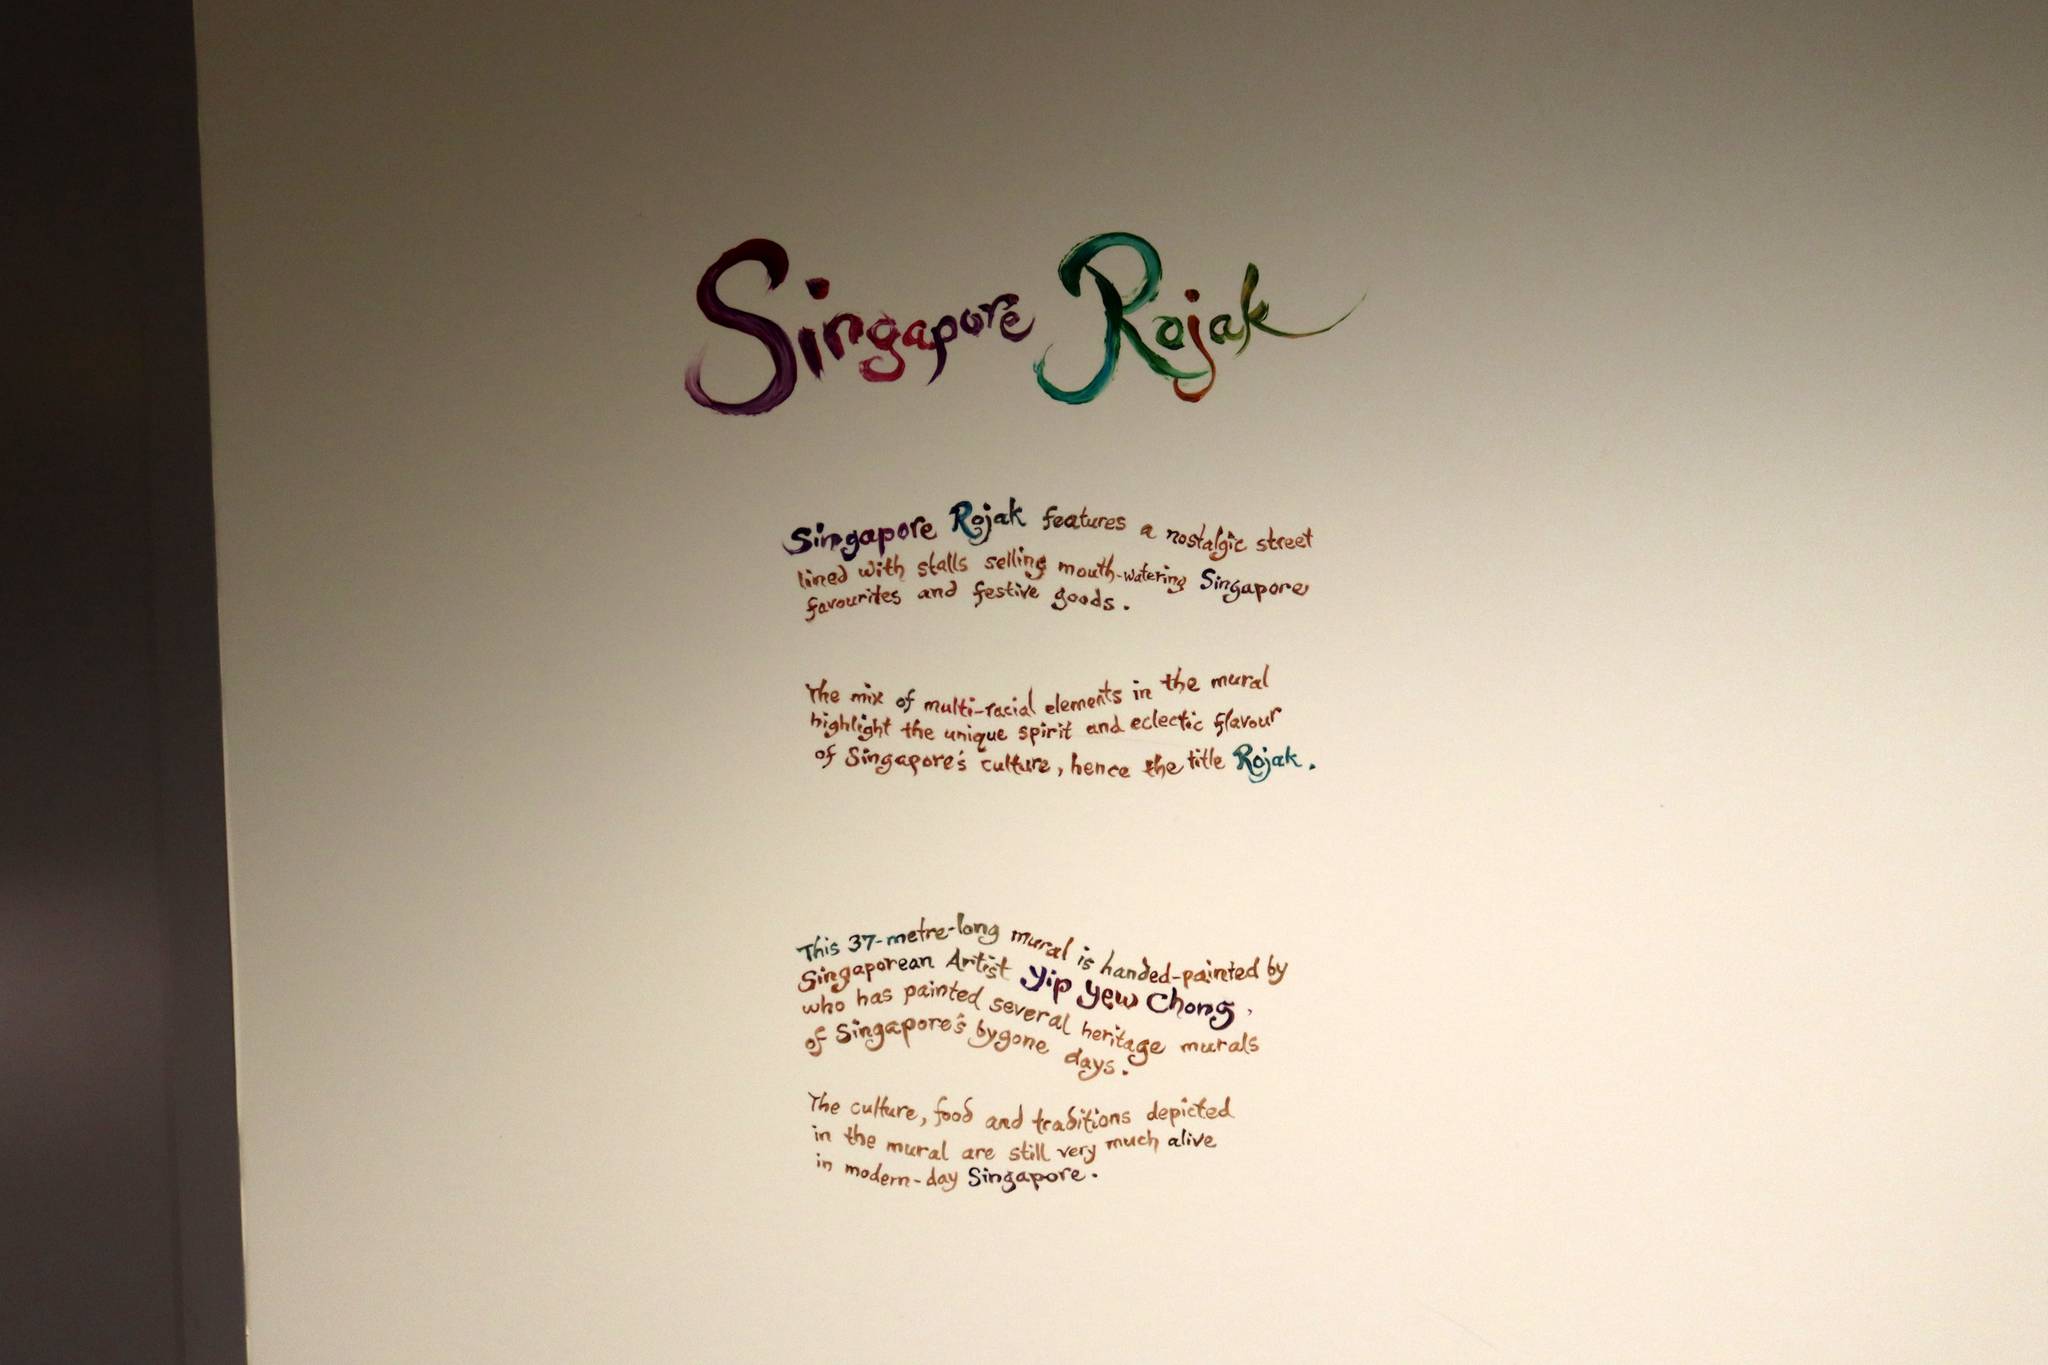 Singapore Rojak
Singapore Rojak features a nostalgic street
lined with stalls selling mouth-watering Singapore
favourites and festive goods.
The mix of multi-racial elements in the mural
highlight the unique spirit and eclectic flavour
of Singapore's culture, hence the title Rojak.
This 37-metre-long mural is handed-painted by
Singaporean Artist Yip Yew Chong,
who has painted several heritage murals
of Singapore's bygone days.
The culture, food and traditions depicted
in the mural are still very much alive
in modern-day Singapore.